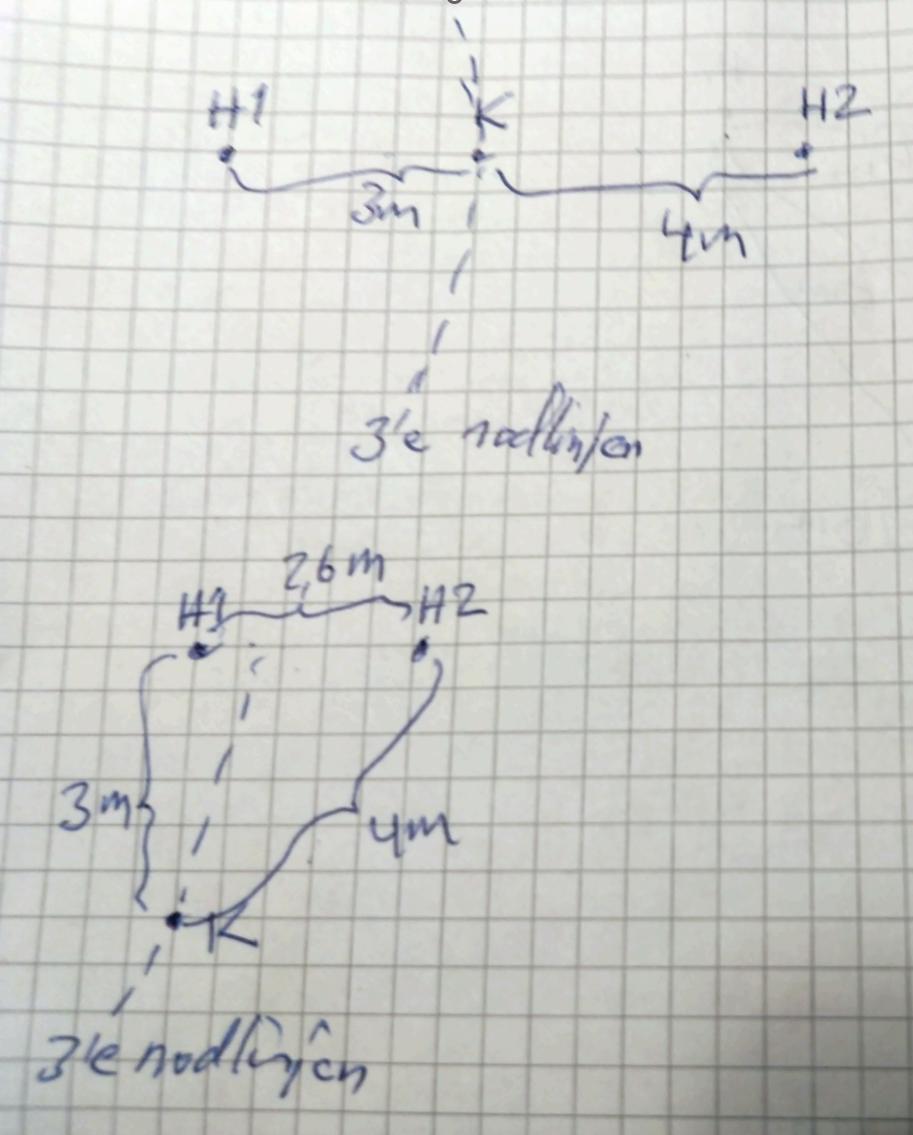 H1 K H2
3m
4m
3'e nodlinjen
2,6 m
H1 H2
3m
4m
K
3'e nodlinjen